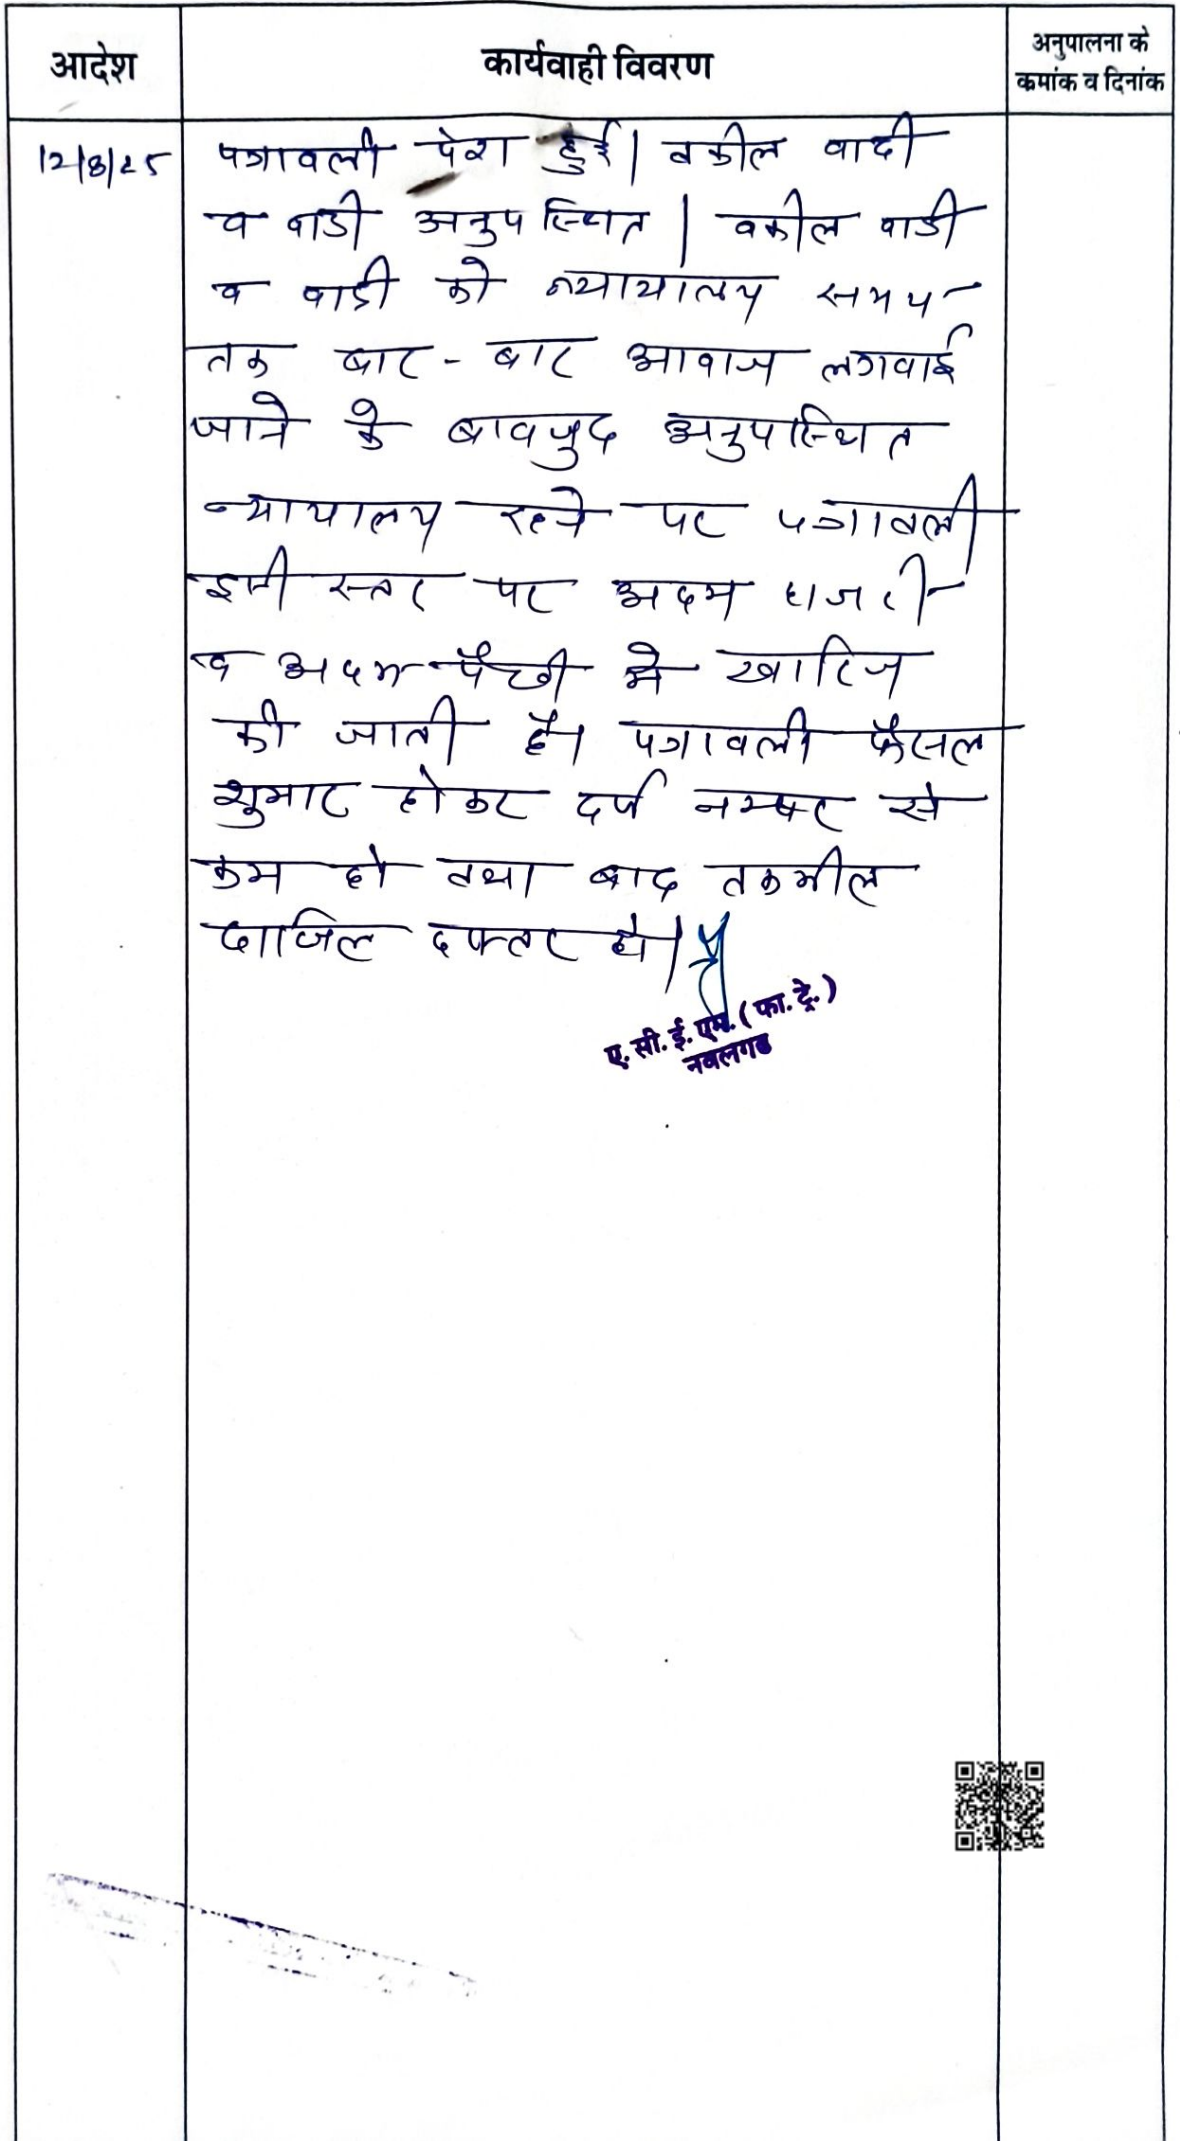 आदेश
कार्यवाही विवरण
अनुपालना के
कमांक व दिनांक
12/8/25
पत्रावली पेश हुई। वकील वादी
व वादी अनुपस्थित। वकील वादी
व वादी को न्यायालय समय
तक बार-बार आवाज लगवाई
जाने के बावजुद अनुपस्थित
न्यायालय रहने पर पत्रावली
इसी स्तर पर अदम हाजरी
व अदम पैरवी मे खारिज
की जाती है। पत्रावली फैसल
शुमार होकर दर्ज नम्बर से
कम हो तथा बाद तकमील
दाखिल दफ्तर हो।
ए. सी. ई. एम. (फा. ट्रे.)
नवलगढ